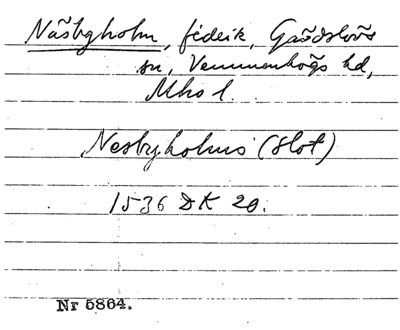 Näsbyholm, fideik, Gärdslövs
sn, Vemmenhögs hd,
Mhs l.
Nesbyholms (slot)
1536 DK 20.
Nr 5864.